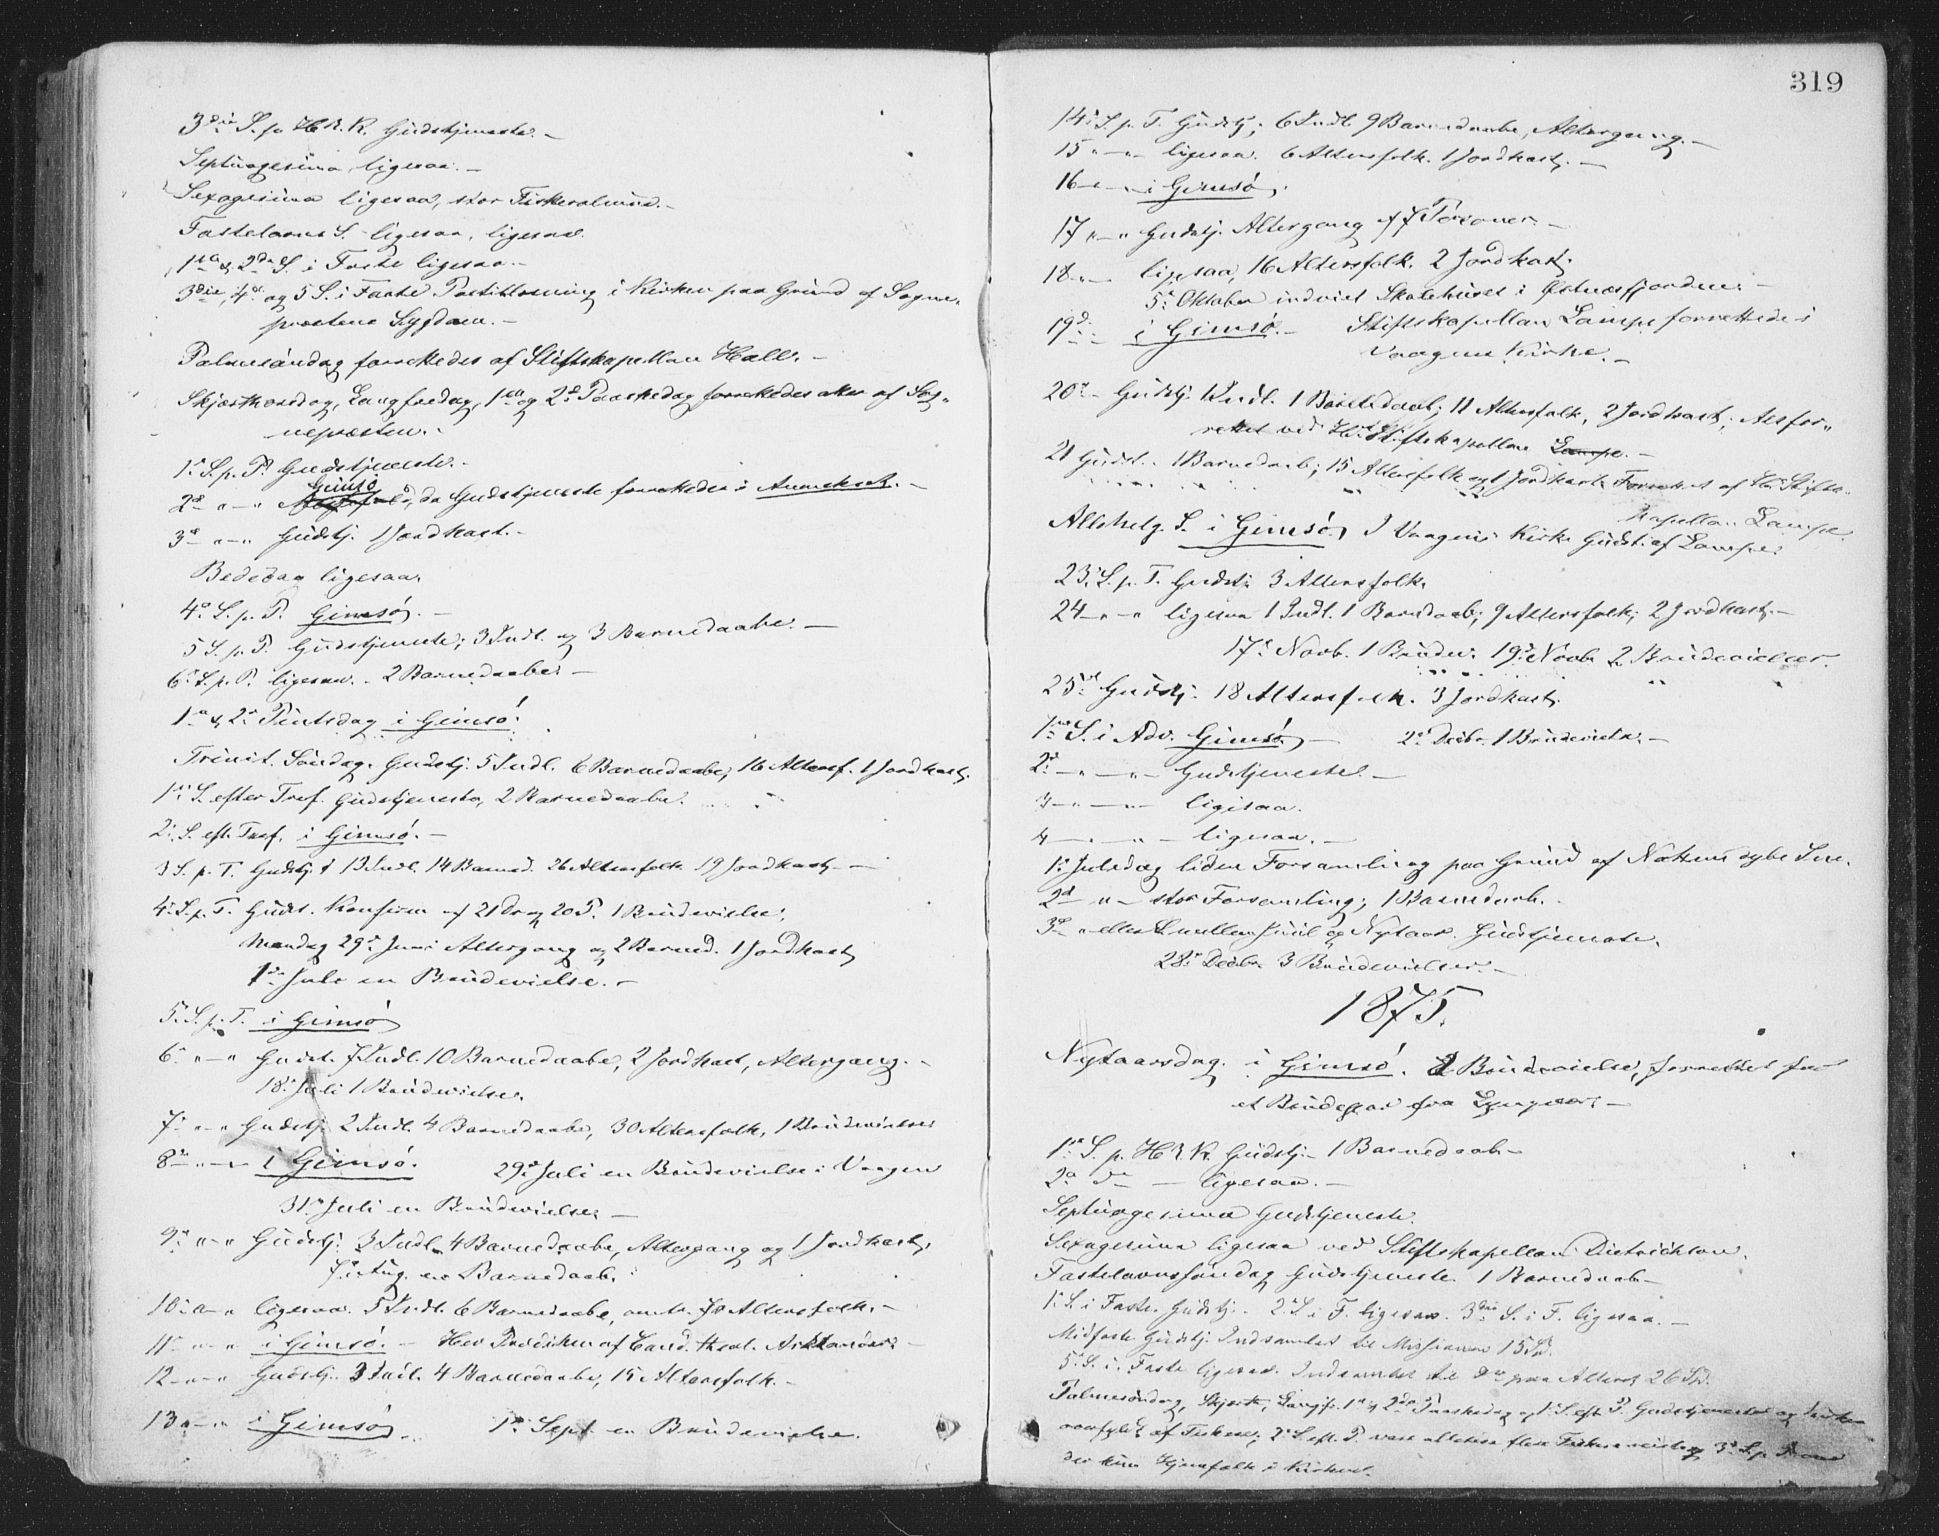 3die S. p. H 3 K. Gudstjeneste. –
Septuagesima ligesaa. –
Sexagesima ligesaa, stor Fiskeralmue. –
Fastelavns S. ligesaa, ligesaa.
1ste & 2den S. i Faste ligesaa. –
3die, 4de og 5 S. i Faste Postillæsning i Kirken paa Grund af Sogne-
præstens Sygdom. –
Palmesøndag forrettedes af Stiftskapellan Hall. –
Skjærthorsdag, Langfredag, 1ste og 2d Paaskedag forrettedes atter af Sog-
nepræsten. –
1ste S. p. P. Gudstjeneste. –
Gimsø
2d " – " da Gudstjeneste forrettedes i Annekset. –
3d " – " Gudstj. 1 Jordkast. –
Bededag ligesaa.
4d S. p. P. Gimsø. –
5 S. p. P. Gudstjeneste; 3 Indl. og 3 Barnedaabe. –
6te S. p. P. ligesaa. – 2 Barnedaabe. –
1ste & 2d Pintsdag i Gimsø.
Trinit. Søndag. Gudstj. 5 Indl. 6 Barnedaabe, 16 Altersf. 1 Jordkast.
1ste S. efter Tref. Gudstjeneste, 2 Barnedaabe.
2d S. eft. Tref. i Gimsø. –
3 S. p. T. Gudstj. 13 Indl. 14 Barned. 26 Altersfolk 19 Jordkast. –
4de S. p. T. Gudst. Konfirm. af 21 Dr. og 20 P. 1 Brudevielse.
Mandag 29de Juni Altergang og 2 Barned. 1 Jordkast
1ste Juli en Brudevielse. –
5te S. p. T. i Gimsø
6te " – " Gudst. 7 Indl. 10 Barnedaabe, 2 Jordkast, Altergang. –
18de Juli 1 Brudevielse.
7de " – " Gudstj. 2 Indl. 4 Barnedaabe, 30 Altersfolk, 1 Brudevielse
8de " – " i Gimsø. 29de Juli en Brudevielse i Vaagen
31te Juli en Brudevielse. –
9de " – " Gudstj. 3 Indl. 4 Barnedaabe, Altergang og 1 Jordkast.
en Barnedaab.
10de " – " ligesaa. 5 Indl. 6 Barnedaabe, omtr. 70 Altersfolk. –
11te " – " i Gimsø. – Her Prædiken af Cand. theol. –
12 – " – " Gudstj. 3 Indl. 4 Barnedaabe, 15 Altersfolk. –
13 " – " i Gimsø. 1ste Sept. en Brudevielse.
319
14de S. p. T. Gudstj; 6 Indl 9 Barnedaabe, Altergang. –
15 " – " ligesaa. 6 Altersfolk. 1 Jordkast. –
16 – " – i Gimsø.
17 " – " Gudstj. Altergang af 7 Personer. –
18 " – ligesaa, 16 Altersfolk. 2 Jordkast.
5te Oktober indviet Skolehuset i Østnæsfjorden. –
19d – i Gimsø. – Stiftskapellan Lampe forrettede i
Vaagens Kirke. –
20de – Gudstj. 1 Indl. 1 Barnedaab; 11 Altersfolk, 2 Jordkast; Altfor-
rettet ved Hr. Stiftskapellan Lampe. –
21 Gudst. 1 Barnedaab; 15 Altersfolk og 1 Jordkast Forrettet af Hr. Stifts-
kapellan Lampe.
Allehelg. S. i Gimsø. I Vaagens Kirke Gudst. af Lampe.
23 S. p. T. Gudstj. 3 Altersfolk.
24 – " – " ligesaa 1 Indl. 1 Barnedaab; 9 Altersfolk; 2 Jordkast. –
17de Novb. 1 Brudev. 19de Novb. 2 Brudevielser.
25de Gudstj. 18 Altersfolk. 3 Jordkast.
1ste S. i Adv. Gimsø – 2d Decbr. 1 Brudevielse. –
2d – " – " – Gudstjeneste. –
3 – " – " – ligesaa.
4 – " – " – ligesaa. –
1ste Juledag liden Forsamling paa Grund af Nattens dybe Sne.
2d " – stor Forsamling; 1 Barnedaab. –
3d " eller S. mellem Juul og Nytaar. Gudstjeneste.
28de Decbr. 3 Brudevielser. –
1875.
Nytaarsdag i Gimsø. 2 Brudevielse, forrettet for
et Brudepar fra –
1ste S. p. H 3 K Gudstj. – 1 Barnedaab –
2d D – ligesaa. –
Septuagesima Gudstjeneste.
Sexagesima ligesaa ved Stiftskapellan Dietrichson.
Fastelavnssøndag Gudstjeneste. 1 Barnedaab –
1ste S. i Faste. Gudstj. 2d S. i F. ligesaa. 3die S. i F. ligesaa. –
Midfaste Gudstj. Indsamlet til Missionen 15 Spd.
5te S. i Faste ligesaa. Indsamlet til Do paa Alteret 26 Spd.
Palmesøndag, Skjærth., Langfr. 1ste & 2den Paaskedag og 1ste S. eft. P. Gudstjenester og Kirken
overfyldt af Fiskere; 2d S. eft. P. vare alletiders flere Fiskere 3d S. p. P. var
der kun Hjemfolk i Kirken.